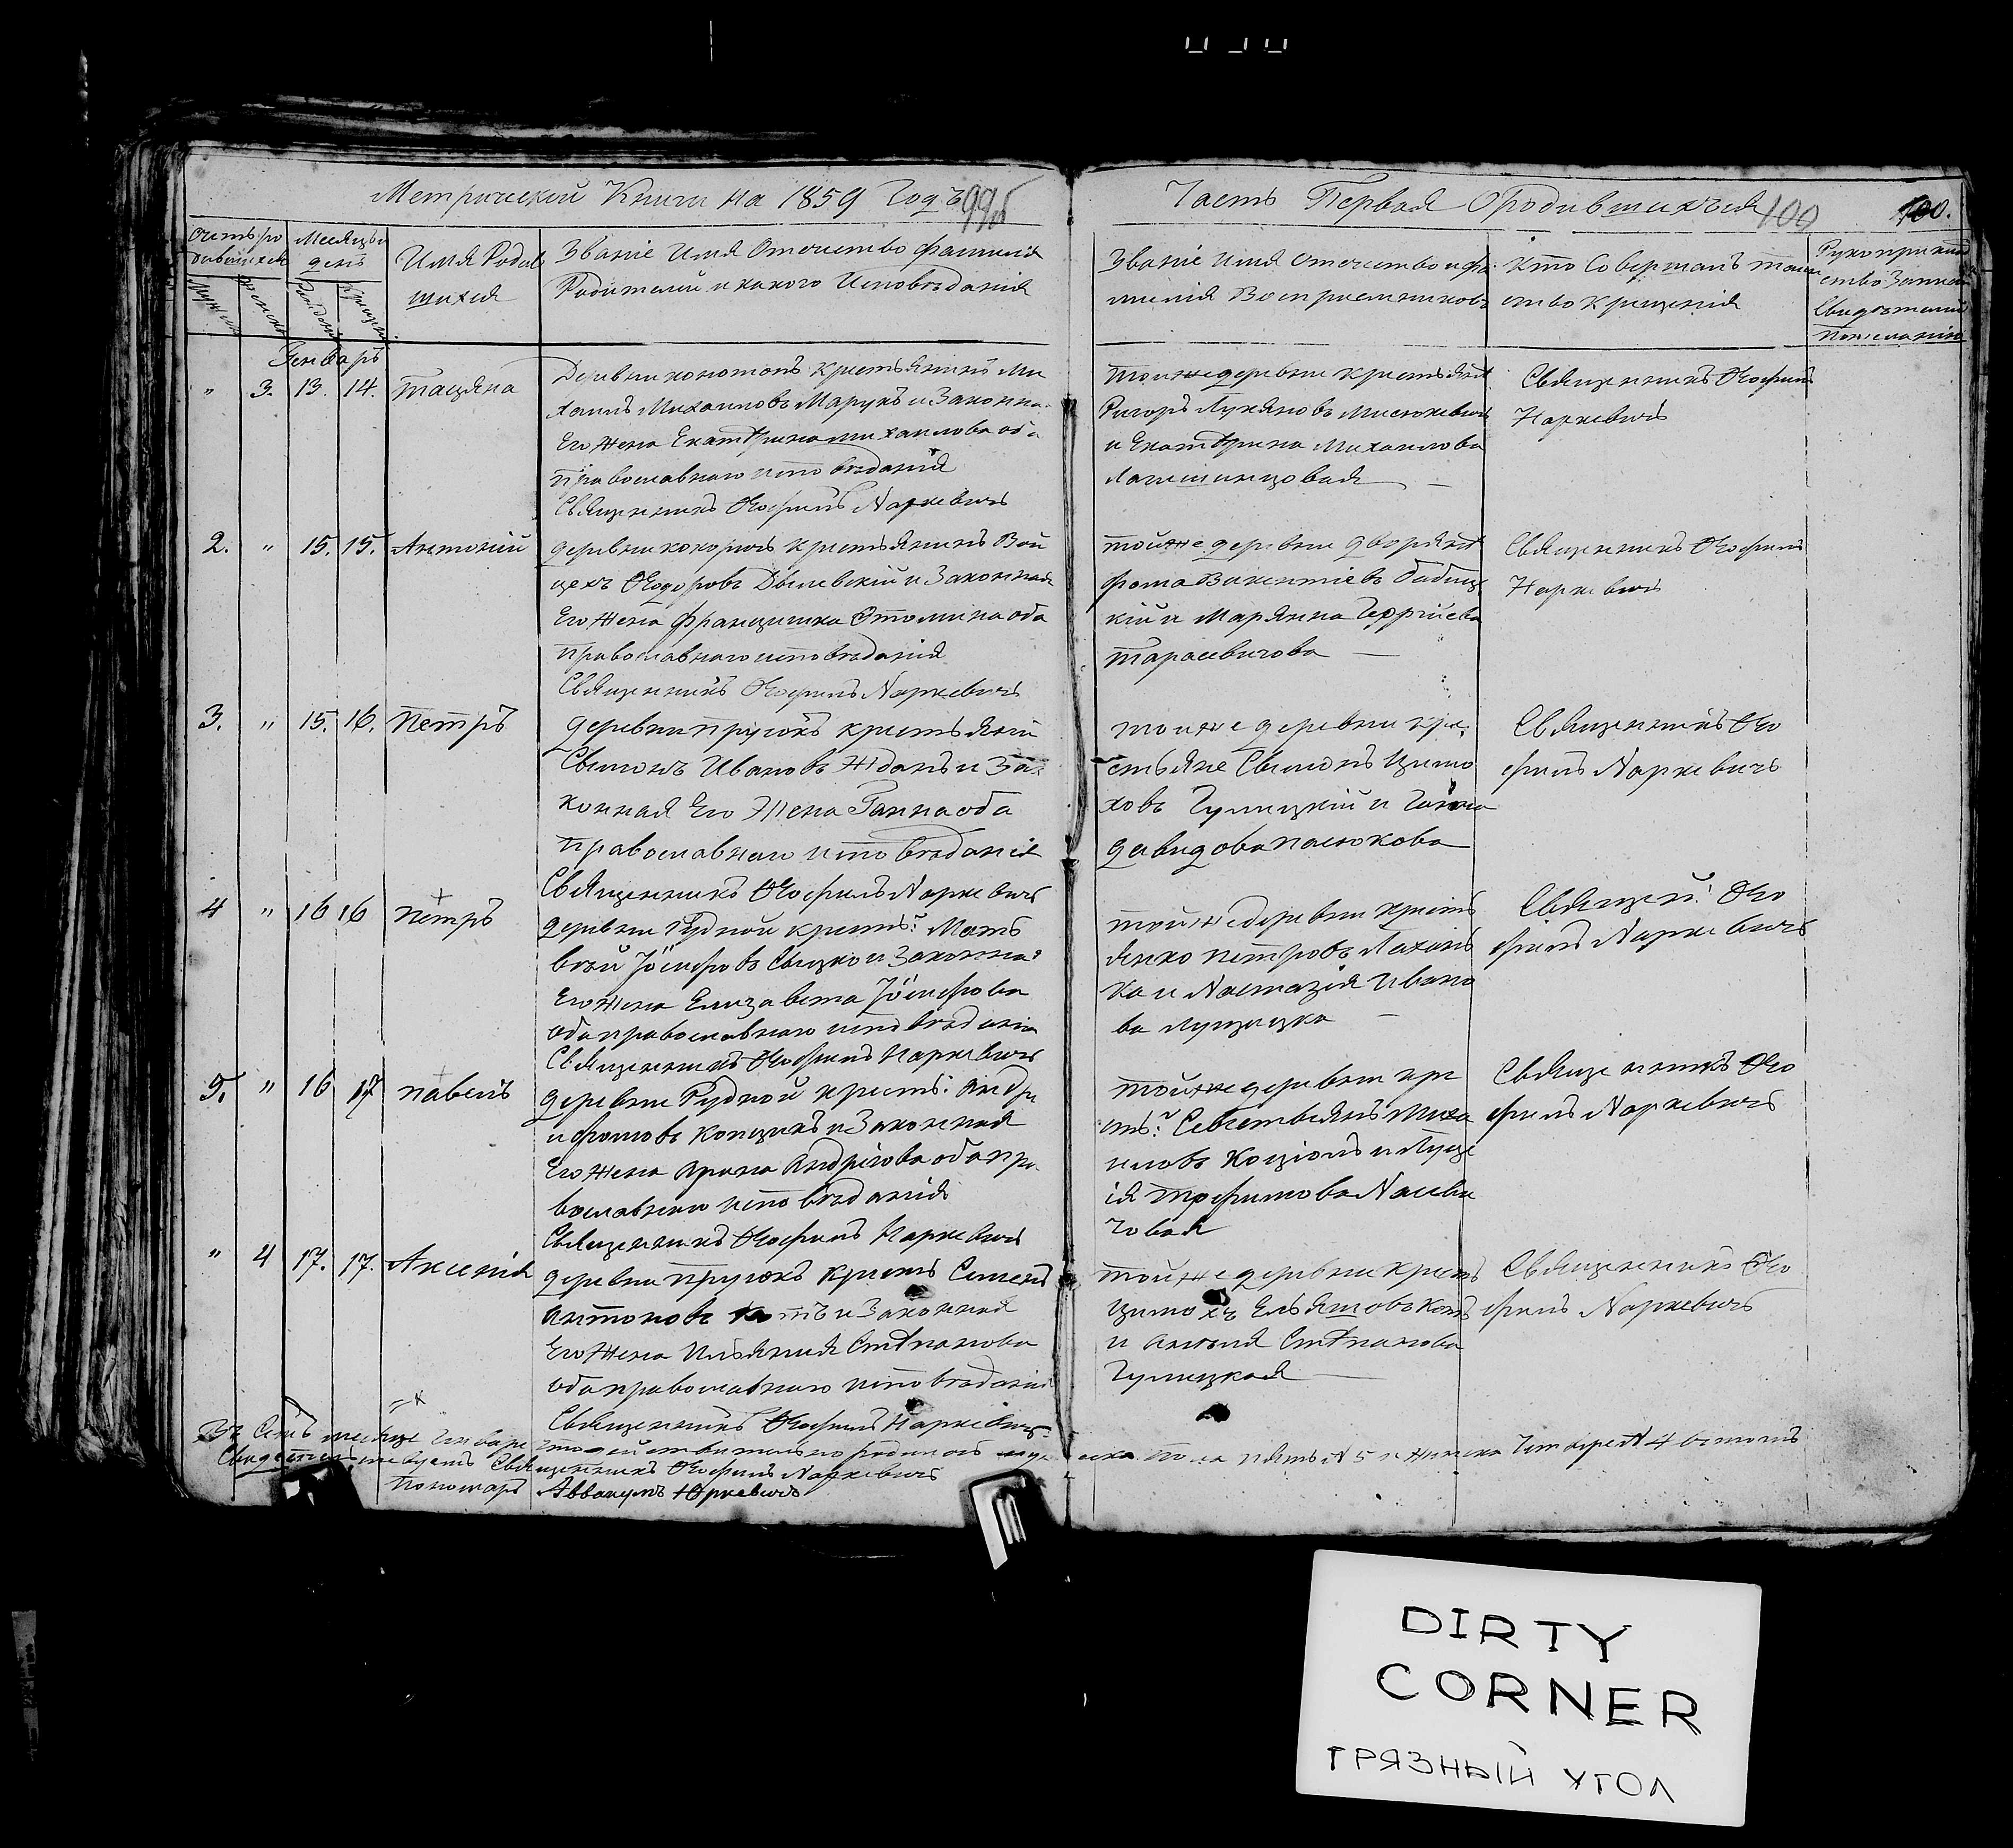 Метрической Книги на 1859 Годъ 99об
Часть Первая О родившихъся 100 100.
Счетъ ро
дившихся
Месяцъ и
день
Имя Родив
шихся
Званіе Имя Отчество Фамилія
Родителей и какого Исповѣданія
Званіе Имя Отчество и Фа
милія Воспріемниковъ
Кто Совершалъ таин
ство Крещенія
Рукоприклад
ство
Свидѣтелей
По желанію
Генваръ
" 3. 13. 14. Тацяна
Деревни конотопъ крестьянинъ Ми
хаилъ Михаиловъ Марукъ и Законна
Его Жена Екатѣрина Михаилова оба
православнаго исповѣданія
Священникъ Ѳеофилъ Наркевичъ
тойже деревни крестьяне
Ригоръ Лукяновъ Мисюкевичъ
и Екатѣрина Михаилова
Священникъ Ѳеофилъ
Наркевичъ
2. " 15. 15. Антоній
деревни кокорич крестьянинъ Вой
цехъ Ѳеодоровъ Дылевскій и Законная
Его Жена Францишка Ѳтомина оба
православнаго исповѣданія
Священникъ Ѳеофилъ Наркевичъ
тойже деревни дворяне
Фома Викентіевъ Бабиц
кій и Марянна Георгіева
тарасевичова
Священникъ Ѳеофилъ
Наркевичъ
3. " 15. 16. Петръ
деревни пругокъ крестьянин
Сымонъ Ивановъ Жданъ и За
конная Его Жена Ганна оба
православнаго исповѣданія
Священникъ Ѳеофилъ Наркевичъ
тойже деревни кре
стьяне Сымонъ Цимо
ховъ Гулицкій и Ганна
давидова пасюкова
Священникъ Ѳео
филъ Наркевичъ
4 " 16 16 петръ
деревни Рудной крестъ: Мат
вѣй Іосифовъ Сыцко и Законна
Его жена Елизавета Іосифова
оба православнаго исповѣданія
Священникъ Ѳеофилъ Наркевичъ
тойже деревни крестъ
янко петровъ
ка и Настазія Ивано
ва
Священ: Ѳео
филъ Наркевичъ
5. " 16 17 павелъ
деревни Рудной крестъ: Андре
и Фомовъ Копцикъ и Законная
Его жена Арина Андрѣева оба пра
вославнаго исповѣданія
Священникъ Ѳеофилъ Наркевичъ
тойже деревни кре
ст: Севастьянъ Миха
иловъ и Луце
ія трофимова
човая
Священникъ Ѳео
филъ Наркевичъ
" 4 17. 17. Аксенія
деревни пругокъ крестъ Семенъ
Антоновъ и Законная
Его Жена Ульянія Стѣпанова
оба православнаго исповѣданія
Священникъ Ѳеофилъ Наркевичъ
тойже деревни крестъ
Цимохъ Ельяшовъ
и Стѣпанова
Гулицкая
Священникъ Ѳео
филъ Наркевичъ
Въ Семъ месяце Генваре что действительно родилось пола пять N 5 и женска Четыре N 4 в томъ
Свидетельствуемъ Священникъ Ѳеофилъ Наркевичъ
Пономарь Аввакумъ Юркевичъ
DIRTY
CORNER
ГРЯЗНЫЙ УГОЛ